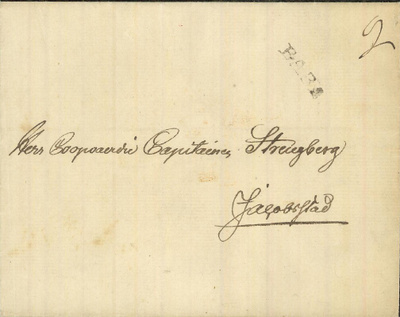 2
Herr Coopvaerdie Capitainen Strengberg
Jacobstad